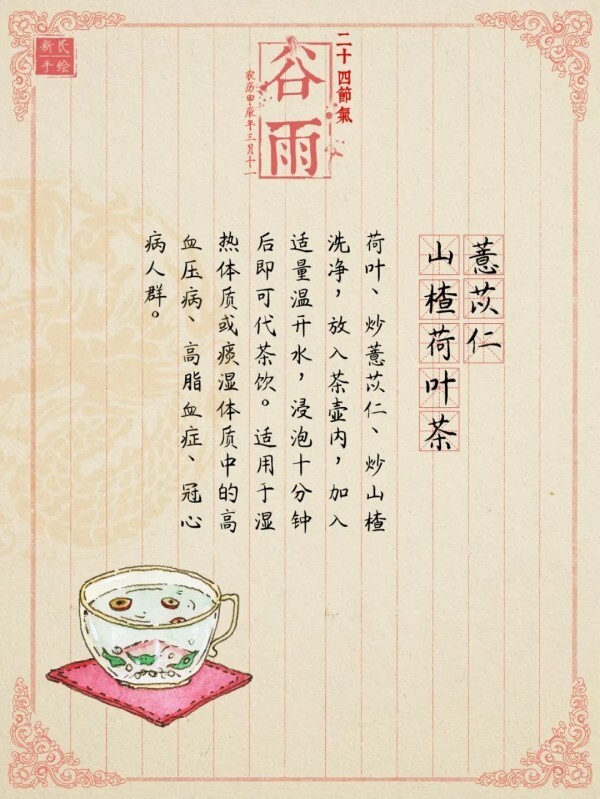 新氏
手绘
二十四節氣
谷雨
农历甲辰年三月十二
薏苡仁
山楂荷叶茶
荷叶、炒薏苡仁、炒山楂
洗净，放入茶壶内，加入
适量温开水，浸泡十分钟
后即可代茶饮。适用于湿
热体质或痰湿体质中的高
血压病、高脂血症、冠心
病人群。